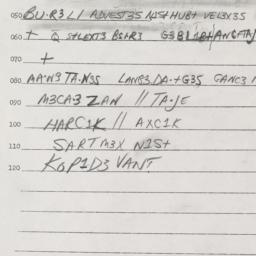 050 BU·R3L1 ADVEST3S N1S+HUB+ VEL3X3S
060 + Q S+LEXT3 BS+R3
070 +
080 AA·N3TA·N3S LANG3DA·+G3S GANC3
090 M3CA3 ZAN // TA·JE
100 HARC1K // AXC1K
110 SARTM3X N1S+
120 KOP1D3 VANT